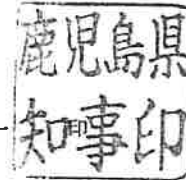 鹿児島県
知事印
印